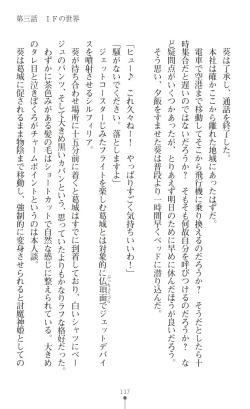 第三話　ＩＦの世界
葵は了承し、通話を終了した。
本社は確かここから離れた地域にあったはずだ。
電車で空港まで移動してそこから飛行機に乗り換えるのだろうか？　そうだとしたら十
時集合だと遅いのではないだろうか？　そもそも何故自分を呼びつけるのだろうか？　な
ど疑問点がいくつかあったが、とりあえず明日のために早めに休んだほうが良いだろう。
そう思い、夕飯をすませた葵は普段より一時間早くベッドに潜り込んだ。
「ヒュー♪　これ久々ねー！　やっぱりすごく気持ちいいわー！」
「騒がないでください、落としますよ」
ジェットコースターじみたフライトを楽しむ葛城とは対象的に仏頂面でジェットデバイ
スを噴射させるシルフィリア。
葵が待ち合わせ場所に十五分前に着くと、葛城はすでに到着しており、白いシャツにベー
ジュのパンツ、そして大きめ黒いカバンという、思っていたよりもかなりラフな格好だった。
わずかに茶色みがある髪の毛はショートカットで自然な感じに整えられている。大きめ
のタレ目と泣きぼくろがチャームポイントというのは本人談。
葵は葛城に促されるまま物陰まで移動し、強制的に変身させられると討魔神姫としての
117